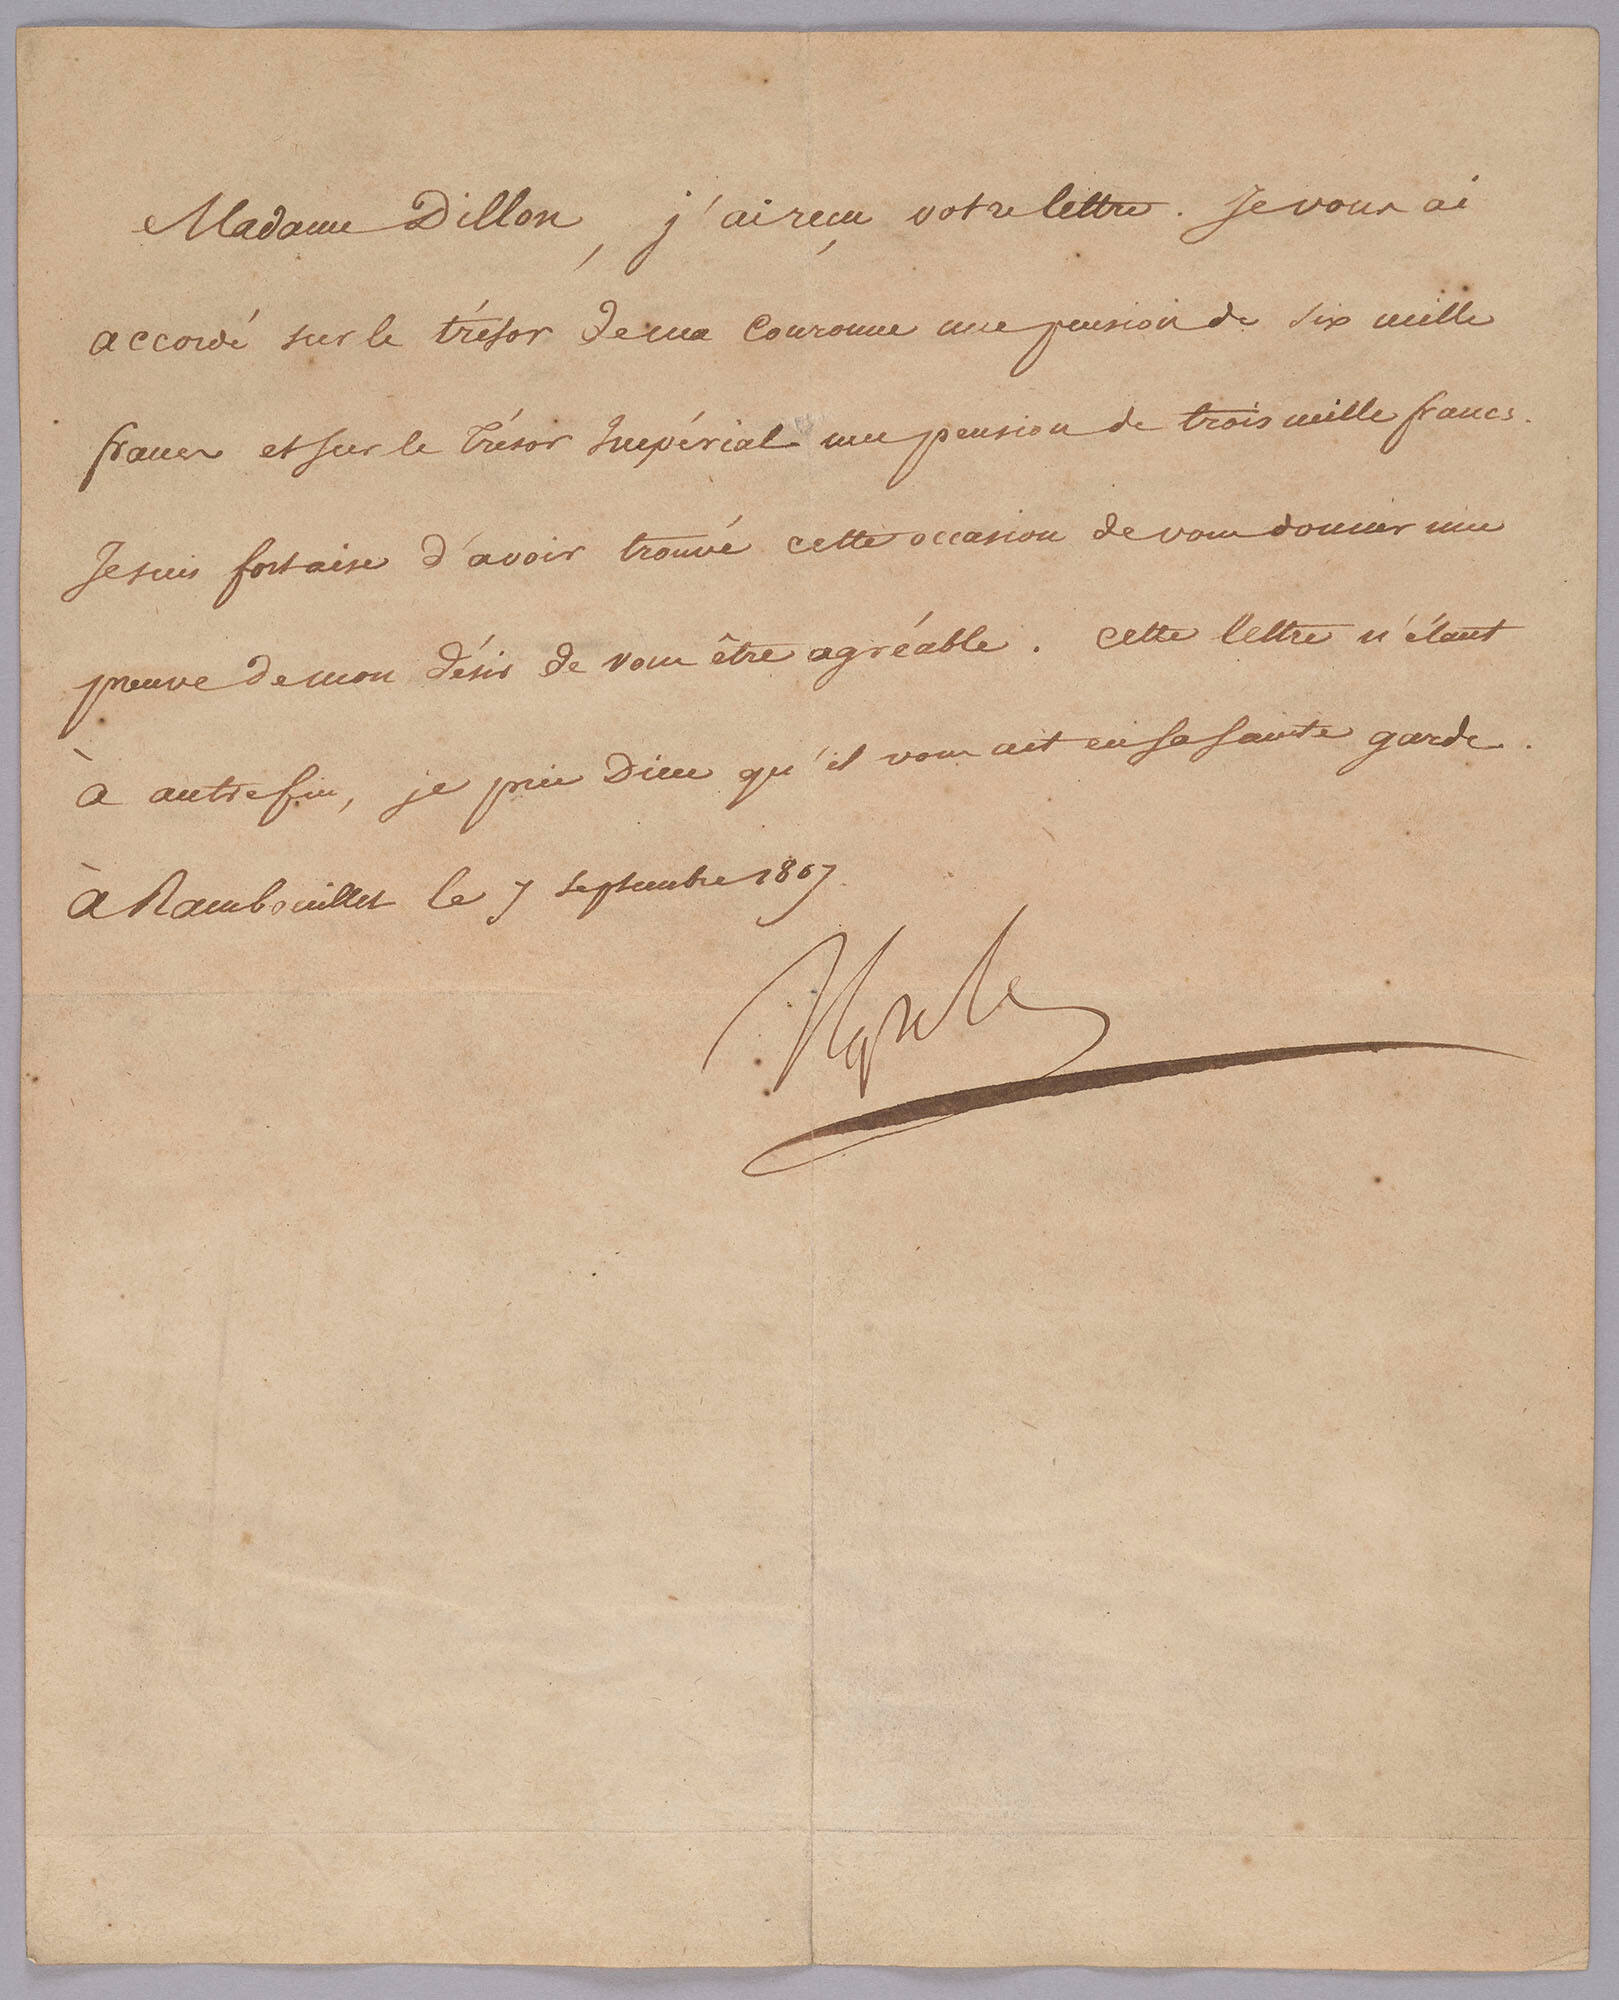 Madame Dillon, j'ai reçu votre lettre. Je vous ai
accordé sur le trésor de ma Couronne une pension de six mille
francs et sur le Trésor Impérial une pension de trois mille francs.
Je suis fort aise d'avoir trouvé cette occasion de vous donner une
preuve de mon désir de vous être agréable. Cette lettre n'étant
à autre fin, je prie Dieu qu'il vous ait en sa sainte garde.
à Rambouillet le 7 septembre 1807.
Napole